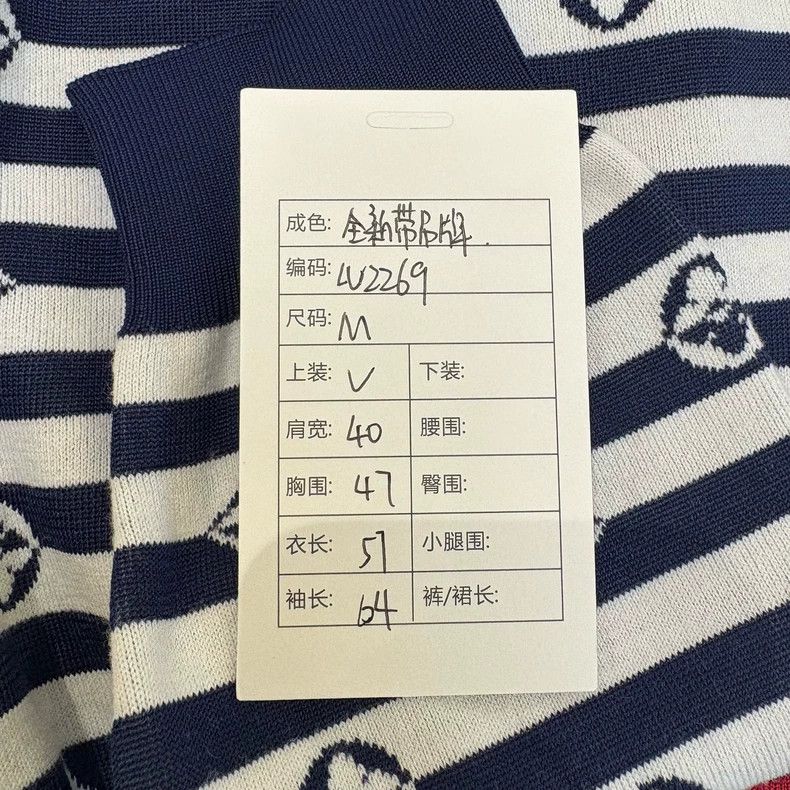 成色: 全新带吊牌.
编码: LV2269
尺码: M
上装: V 下装:
肩宽: 40 腰围:
胸围: 47 臀围:
衣长: 57 小腿围:
袖长: 64 裤/裙长: